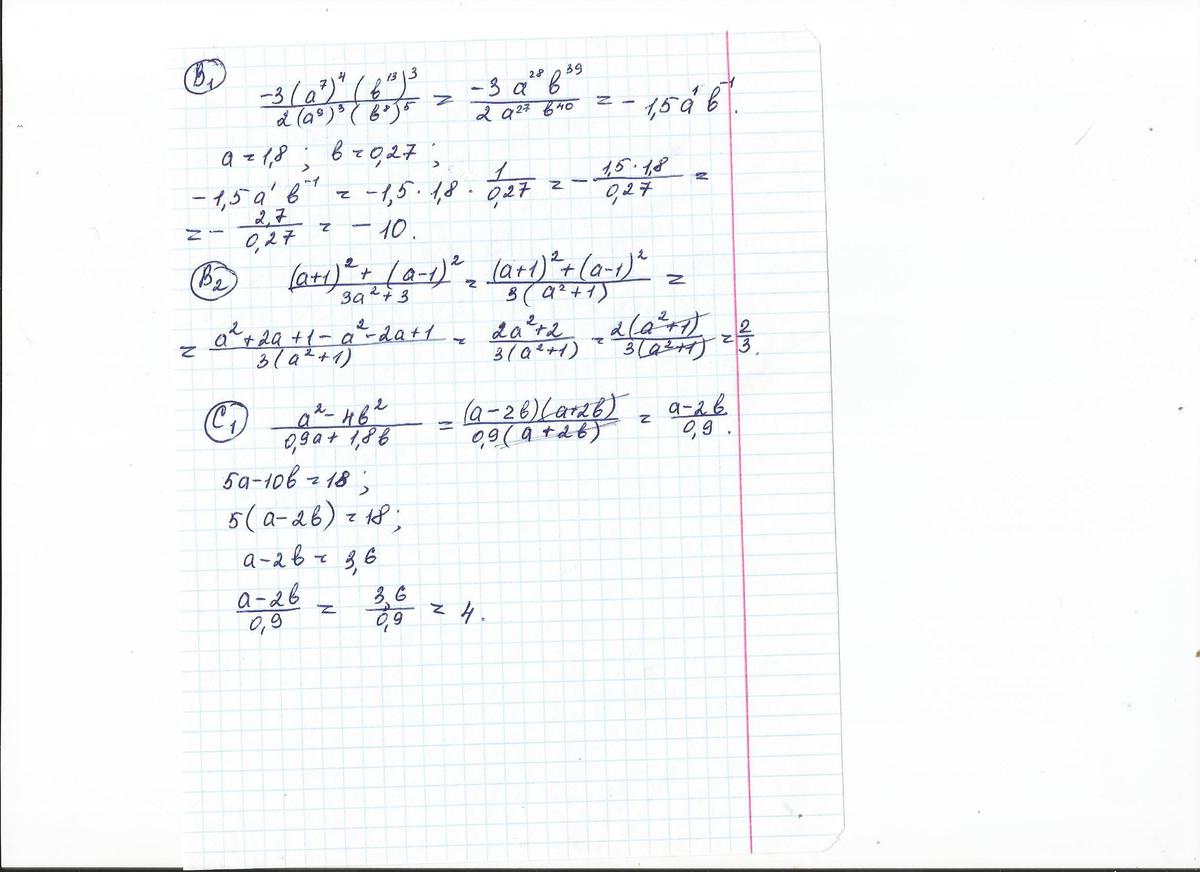 В1 (-3(a⁷)⁴(в¹³)³)/(2(a⁹)³(в⁸)⁵) = (-3a²⁸в³⁹)/(2a²⁷в⁴⁰) = -1,5a¹в⁻¹.
a=1,8; в=0,27;
-1,5a¹в⁻¹ = -1,5·1,8·1/0,27 = -(1,5·1,8)/0,27 =
= -2,7/0,27 = -10.
В2 ((a+1)²+(a-1)²)/(3a²+3) = ((a+1)²+(a-1)²)/(3(a²+1)) =
= (a²+2a+1-a²-2a+1)/(3(a²+1)) = (2a²+2)/(3(a²+1)) = (2(a²+1))/(3(a²+1)) = 2/3.
С1 (a²-4в²)/(0,9a+1,8в) = ((a-2в)(a+2в))/(0,9(a+2в)) = (a-2в)/0,9.
5a-10в=18;
5(a-2в)=18;
a-2в=3,6
(a-2в)/0,9 = 3,6/0,9 = 4.